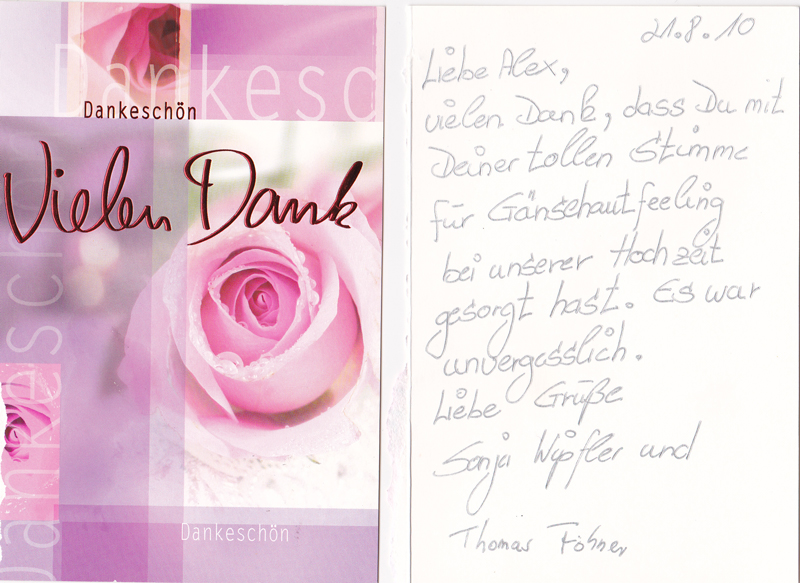 Dankesc
Dankeschön
Vielen Dank
Dankeschön
Dankeschön
21.8.10
Liebe Alex,
vielen Dank, dass Du mit
Deiner tollen Stimme
für Gänsehautfeeling
bei unserer Hochzeit
gesorgt hast. Es war
unvergesslich.
Liebe Grüße
Sonja Wipfler und
Thomas Föhner